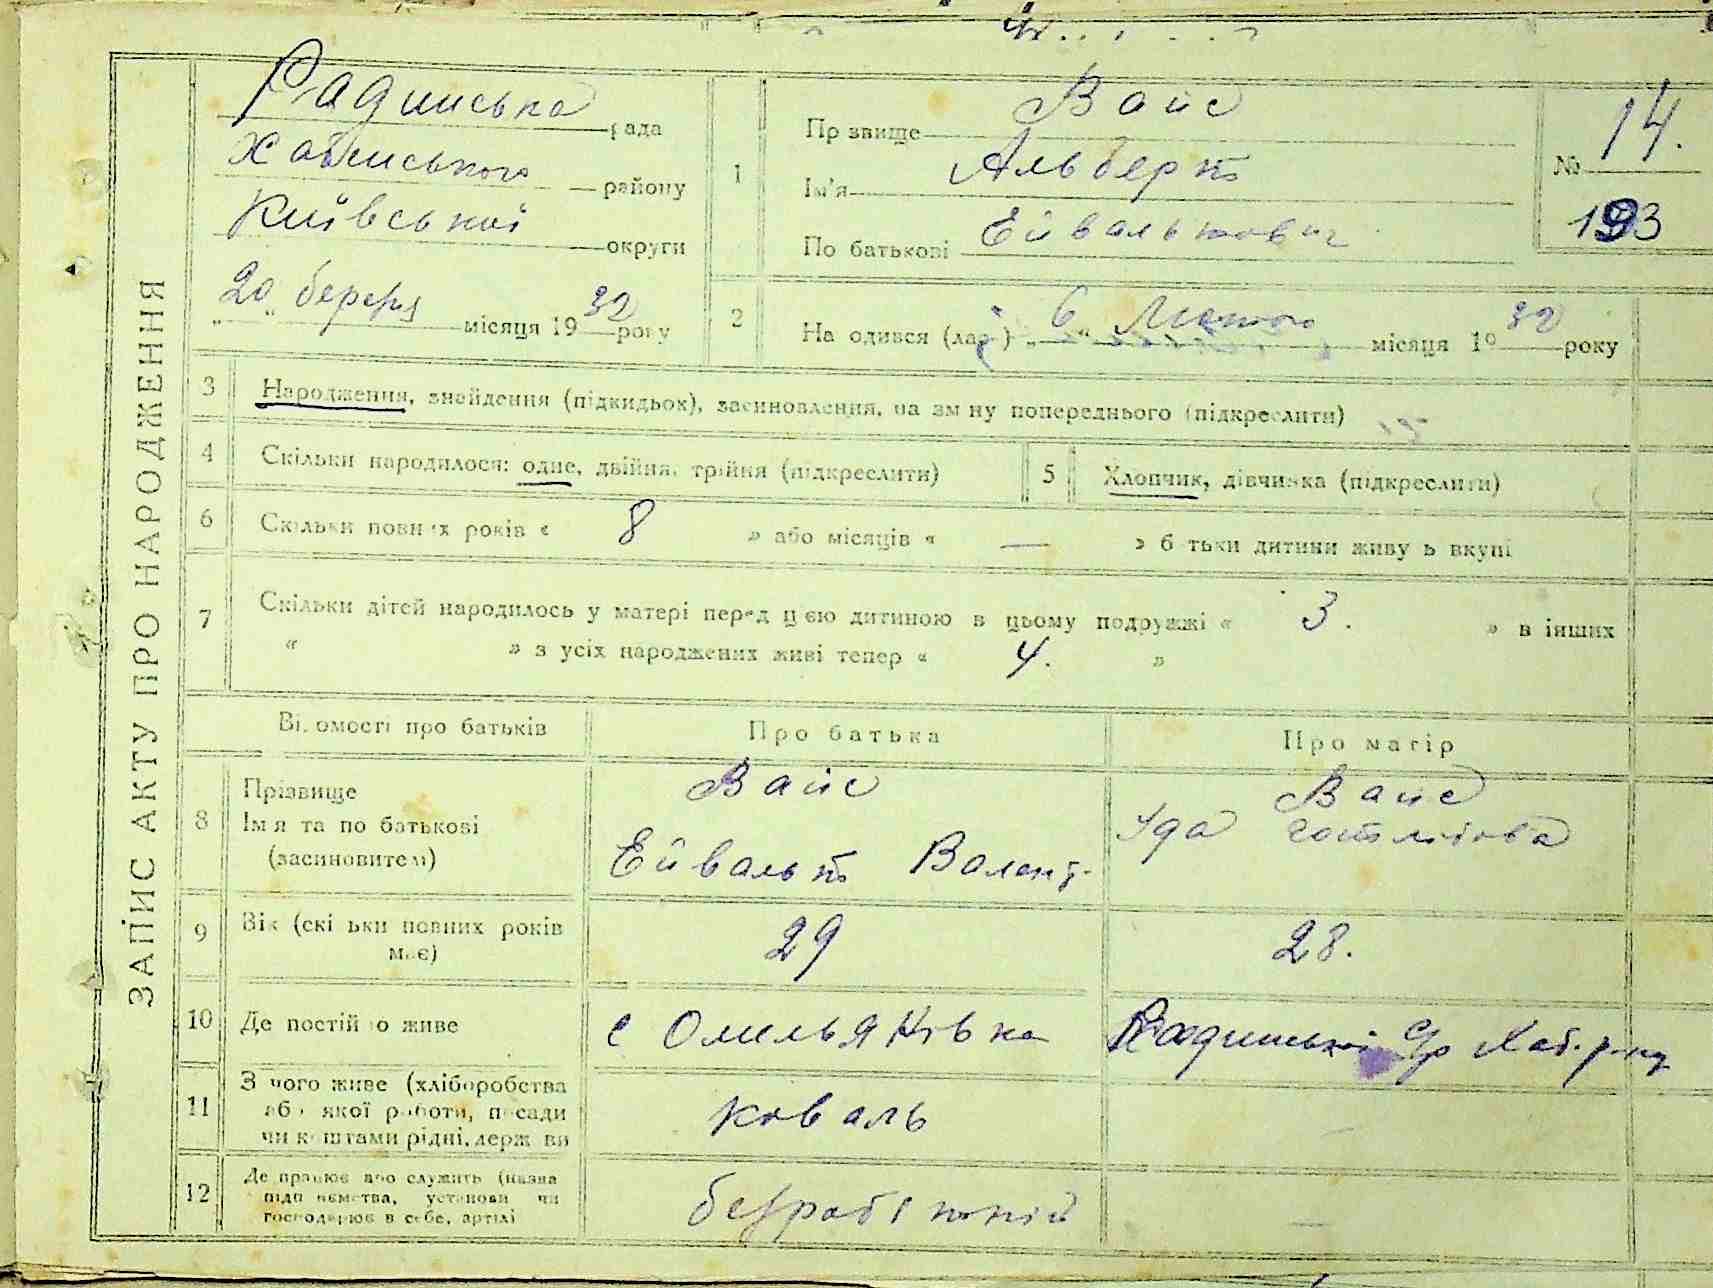 ЗАПИС АКТУ ПРО НАРОДЖЕННЯ
Радинська рада
Хабенського району
Київської округи
„20“ березня місяця 1932 року
1
Прізвище Вайс
Ім'я Альберт
По батькові Ейвальтович
№ 14.
193
2
Народився (лась) „6“ Лютого місяця 1932 року
3 Народження, знайдення (підкидьок), засиновлення, на зміну попереднього (підкреслити)
4 Скільки народилося: одне, двійня, трійня (підкреслити)
5 Хлопчик, дівчинка (підкреслити)
6 Скільки повних років « 8 » або місяців « — » батьки дитини живуть вкупі
7 Скільки дітей народилось у матері перед цією дитиною в цьому подружжі « 3. » в інших
« » з усіх народжених живі тепер « 4. »
Відомості про батьків
Про батька
Про матір
8 Прізвище
Ім'я та по батькові
(засиновителі)
Вайс
Ейвальт Валент.
Вайс
Іда Готлібова
9 Вік (скільки повних років
має)
29
28.
10 Де постійно живе
с Омельянівка
Радинської с/р Хаб. р-ну
11 З чого живе (хліборобства
або якої роботи, посади
чи коштами рідні, держави
коваль
—
12 Де працює або служить (назва
підприємства, установи чи
господарює в себе, артілі
безробітній
—